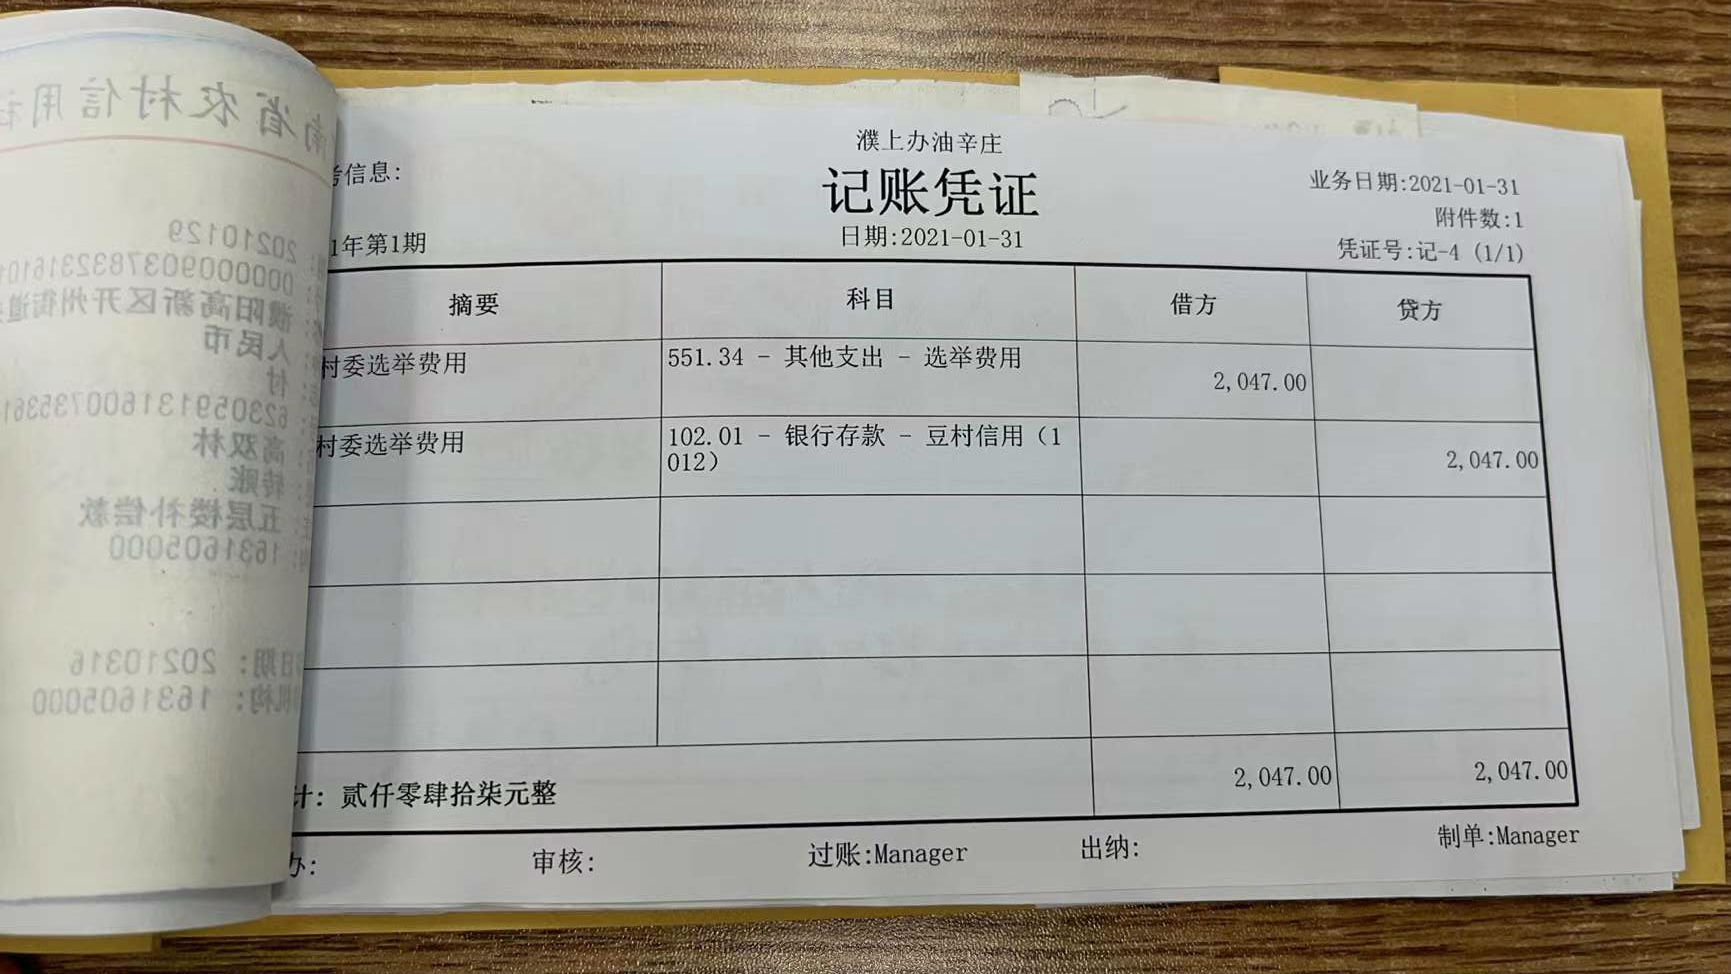 濮上办油辛庄
记账凭证
考信息:
业务日期:2021-01-31
附件数:1
1年第1期
日期:2021-01-31
凭证号:记-4 (1/1)
摘要 科目 借方 贷方
村委选举费用 551.34 - 其他支出 - 选举费用 2,047.00
村委选举费用 102.01 - 银行存款 - 豆村信用（1
012） 2,047.00
计: 贰仟零肆拾柒元整 2,047.00 2,047.00
办: 审核: 过账:Manager 出纳: 制单:Manager
南省农村信用社
20210129
濮阳高新区开州街道
人民币
付
高双林
转账
五层楼补偿款
1631605000
日期: 20210316
机构: 1631605000